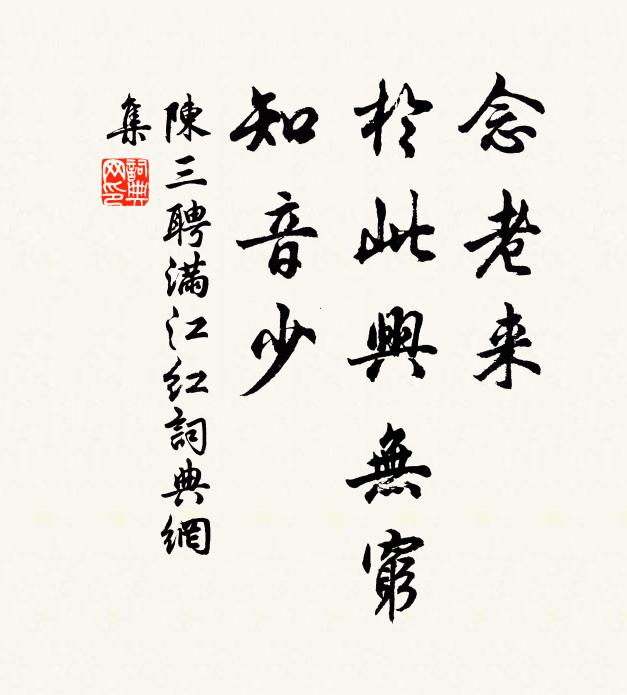 念老来
於此興無窮
知音少
陳三聘满江红詞典網
集
詞典
网印